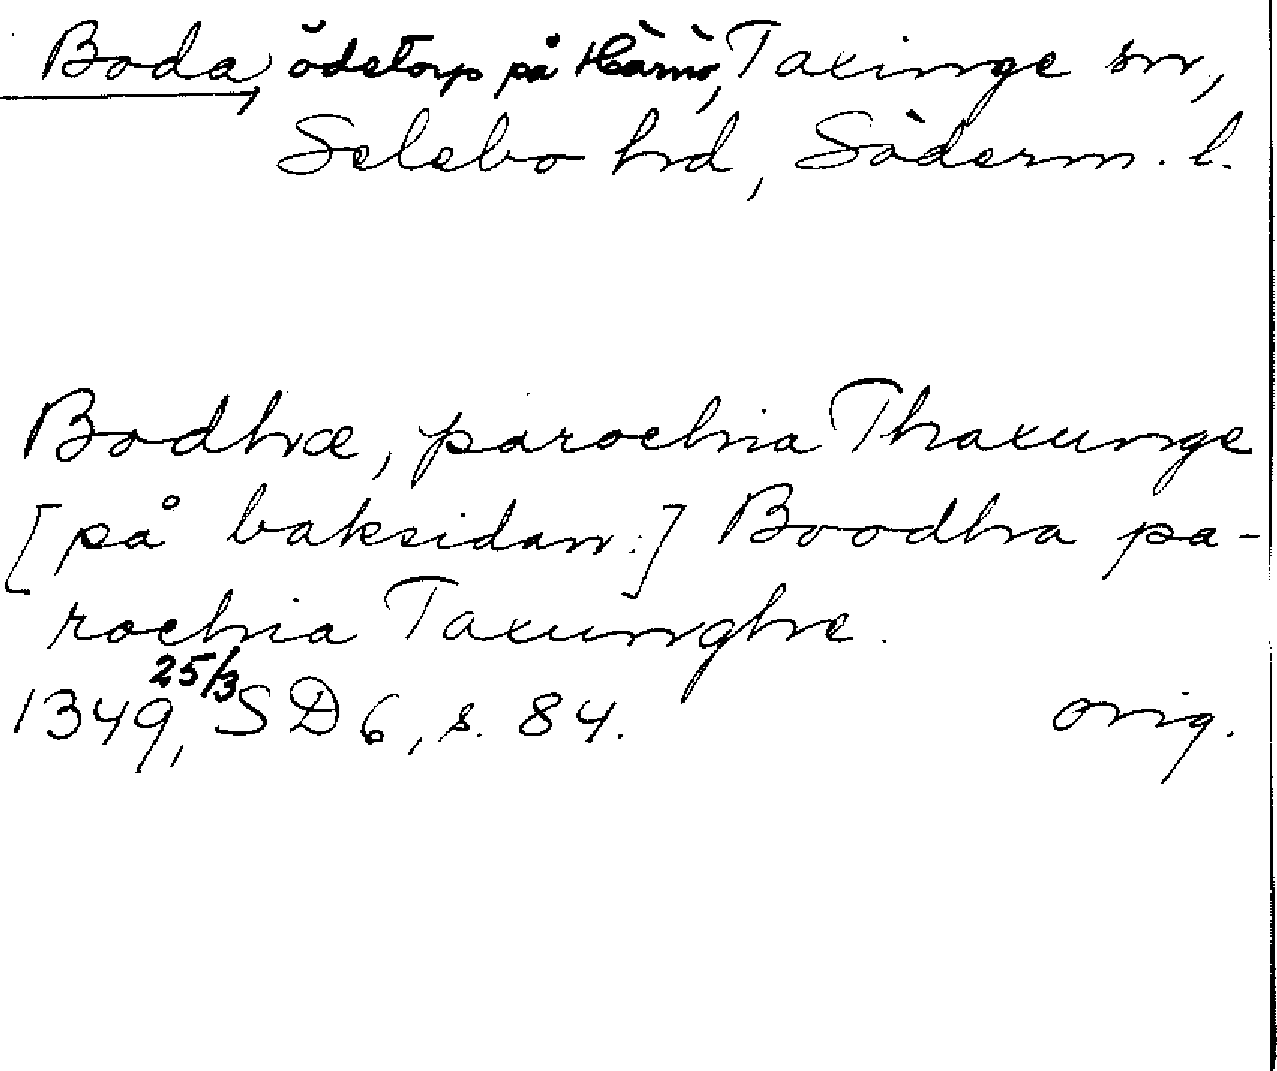 Boda, ödetorp på Härnö, Taxinge sn,
Selebo hd, Söderm. l.
Bodhæ, parochia Thaxunge
[på baksidan:] Boodha pa-
rochia Taxunghe.
1349, 25/3 SD 6, s. 84. orig.